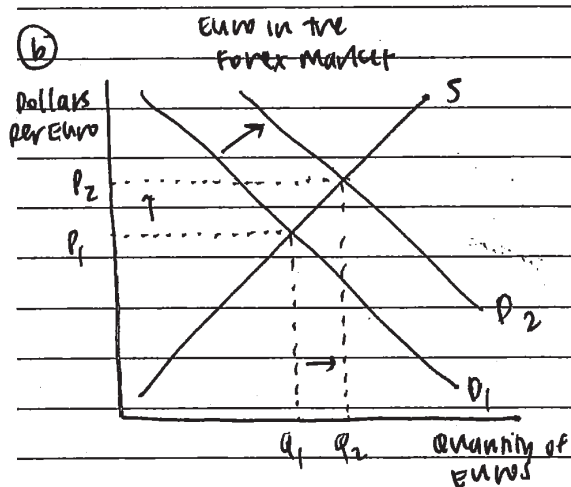 (b)
Euro in the
Forex Market
Dollars
per Euro
S
P2
P1
D2
D1
Q1 Q2
Quantity of
Euros